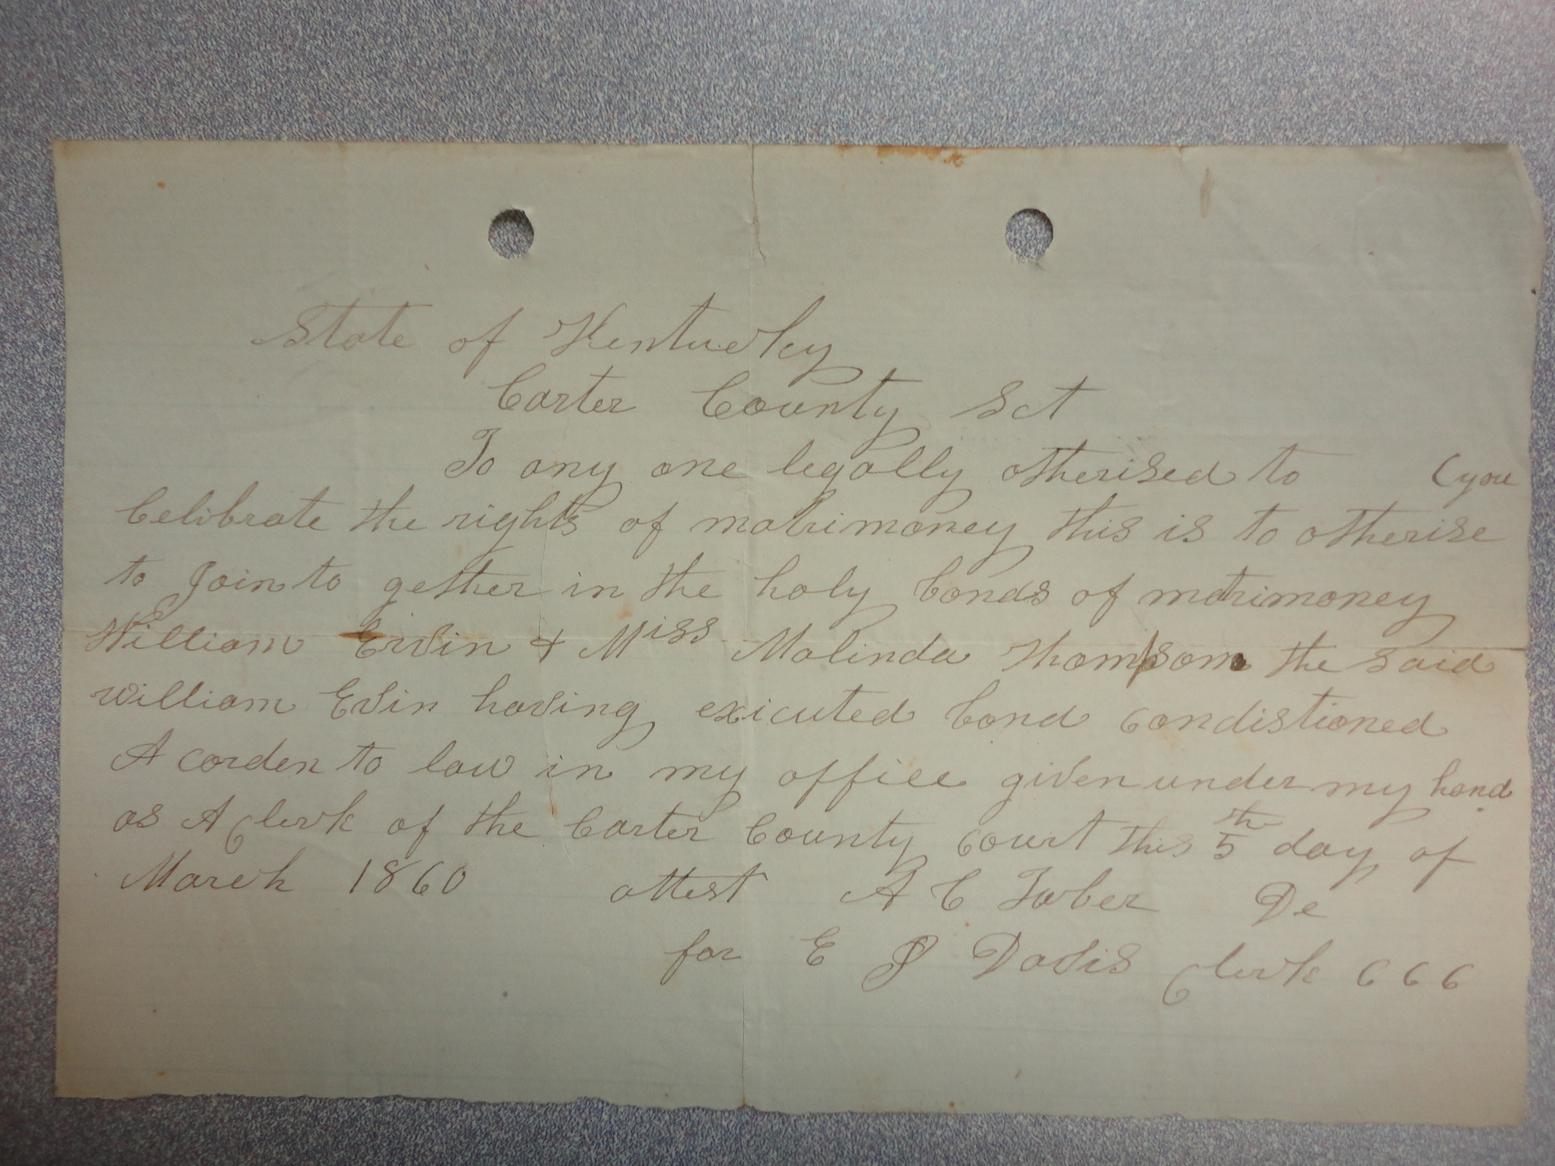 State of Kentucky
Carter County Sct
To any one legally otherised to (you
Celibrate the rights of matrimoney this is to otherise
to Join to gether in the holy bonds of matrimoney
William Ervin & Miss Malinda Thompson the said
william Ervin having exicuted bond condistioned
A corden to law in my office given under my hand
as A Clerk of the Carter County court this 5th day of
March 1860 attest A C Taber De
for E J Davis Clerk CCC